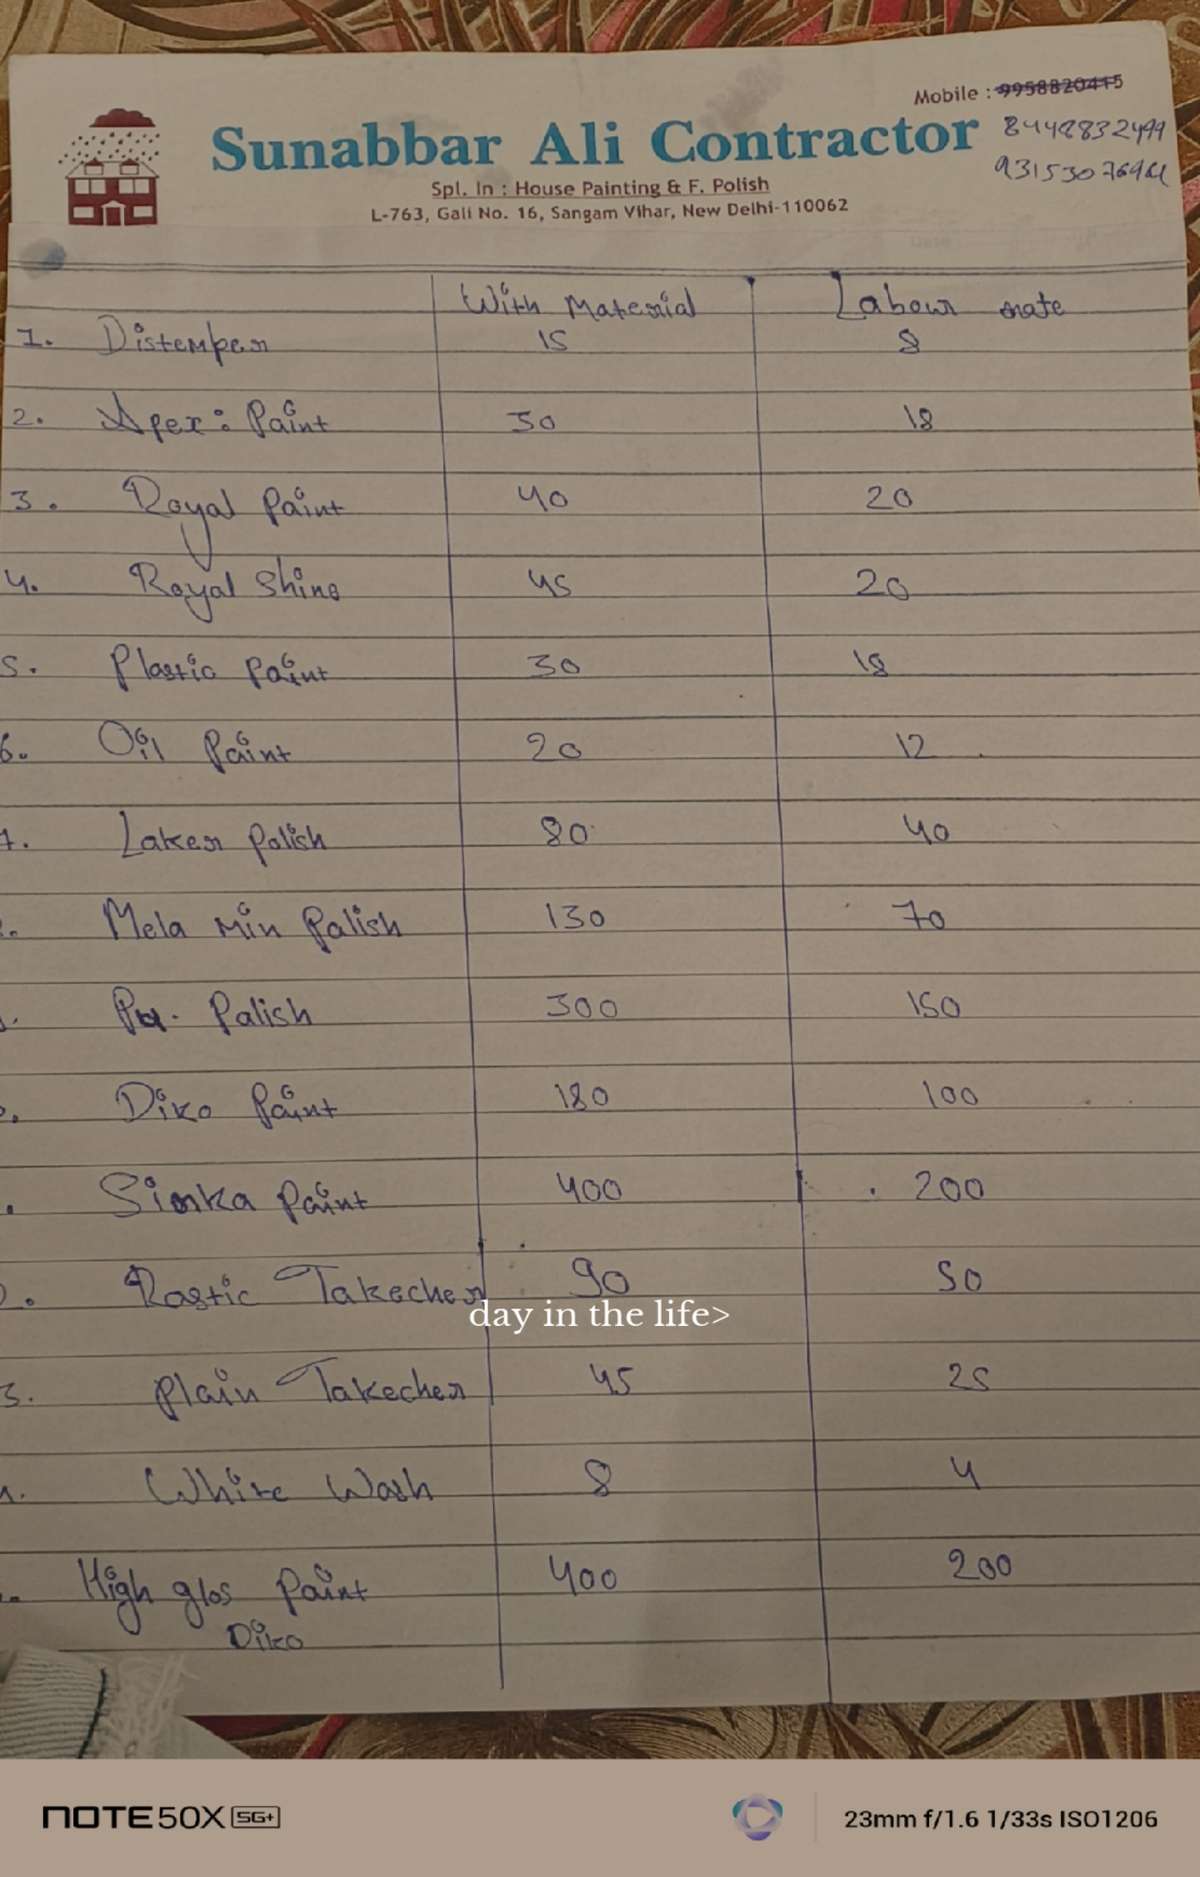 Mobile : 9958820415
Sunabbar Ali Contractor
8448832499
Spl. In : House Painting & F. Polish
L-763, Gali No. 16, Sangam Vihar, New Delhi-110062
With Material Labour rate
1. Distemper 15 8
2. Apex: Paint 30 18
3. Royal Paint 40 20
4. Royal Shine 45 20
5. Plastic Paint 30 18
6. Oil Paint 20 12
7. Laker Palish 80 40
Mela Min Palish 130 70
Pu. Palish 300 150
Diko Paint 180 100
Simka Paint 400 200
Rastic Takecher 90 50
day in the life>
3. Plain Takecher 45 25
White Wash 8 4
High glos Paint 400 200
Diko
NOTE50X 5G+
23mm f/1.6 1/33s ISO1206